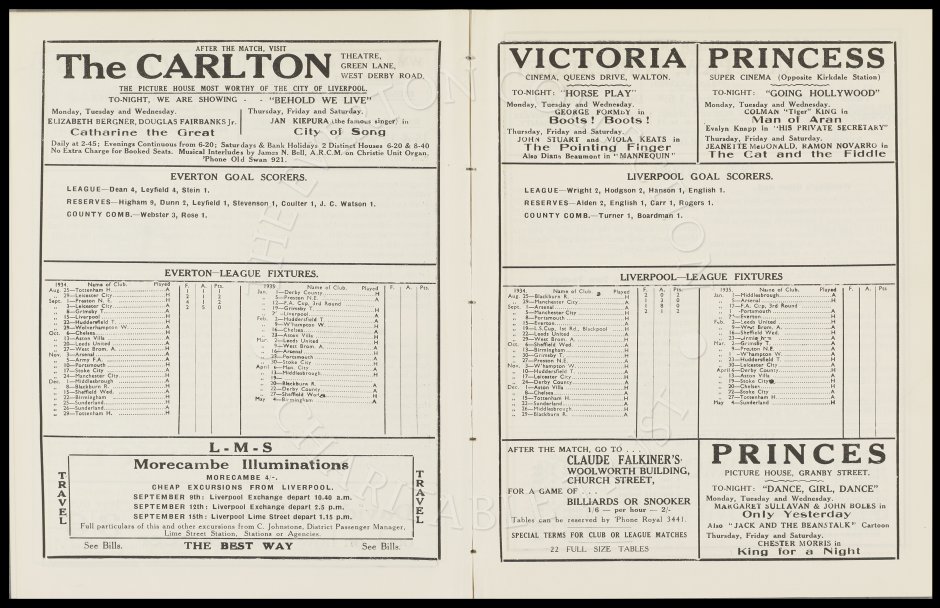 AFTER THE MATCH, VISIT
The CARLTON
THEATRE,
GREEN LANE,
WEST DERBY ROAD.
THE PICTURE HOUSE MOST WORTHY OF THE CITY OF LIVERPOOL.
TO-NIGHT, WE ARE SHOWING - - "BEHOLD WE LIVE"
Monday, Tuesday and Wednesday.
ELIZABETH BERGNER, DOUGLAS FAIRBANKS Jr.
Catharine the Great
Thursday, Friday and Saturday.
JAN KIEPURA (the famous singer) in
City of Song
Daily at 2-45; Evenings Continuous from 6-20; Saturdays & Bank Holidays 2 Distinct Houses 6-20 & 8-40
No Extra Charge for Booked Seats. Musical Interludes by James N. Bell, A.R.C.M. on Christie Unit Organ.
'Phone Old Swan 921.
EVERTON GOAL SCORERS.
LEAGUE—Dean 4, Leyfield 4, Stein 1.
RESERVES—Higham 9, Dunn 2, Leyfield 1, Stevenson 1, Coulter 1, J. C. Watson 1.
COUNTY COMB.—Webster 3, Rose 1.
EVERTON—LEAGUE FIXTURES.
1934. Name of Club. Played F. A. Pts.
Aug. 25—Tottenham H. A 1 1 1
" 29—Leicester City H 2 1 2
Sept. 1—Preston N. E. H 4 1 2
" 3—Leicester City A 2 5 0
" 8—Grimsby T. A
" 15—Liverpool H
" 22—Huddersfield T. A
" 29—Wolverhampton W. H
Oct. 6—Chelsea A
" 13—Aston Villa
" 20—Leeds United
" 27—West Brom. A.
Nov. 3—Arsenal
" 5—Army F.A.
" 10—Portsmouth
" 17—Stoke City
" 24—Manchester City
Dec. 1—Middlesbrough
" 8—Blackburn R.
" 15—Sheffield Wed.
" 22—Birmingham
" 25—Sunderland
" 26—Sunderland
" 29—Tottenham H.
1935. Name of Club. Played F. A. Pts.
Jan. 1—Derby County
" 5—Preston N.E.
" 12—F.A. Cup, 3rd Round
" 19—Grimsby T.
Liverpool
Feb. 2—Huddersfield T.
" 9—W'hampton W.
" 16—Chelsea
" 23—Aston Villa
Mar. 2—Leeds United
" 9—West Brom. A.
" 16—Arsenal
" 23—Portsmouth
" 30—Stoke City
April 6—Man. City
" 13—Middlesbrough
" 20—Blackburn R.
" 22—Derby County
" 27—Sheffield Wed.
May 4—Birmingham A
L-M-S
TRAVEL
Morecambe Illuminations
MORECAMBE 4/-.
CHEAP EXCURSIONS FROM LIVERPOOL.
SEPTEMBER 9th: Liverpool Exchange depart 10.40 a.m.
SEPTEMBER 12th: Liverpool Exchange depart 2.5 p.m.
SEPTEMBER 15th: Liverpool Lime Street depart 1.15 p.m.
Full particulars of this and other excursions from C. Johnstone, District Passenger Manager,
Lime Street Station, Stations or Agencies.
TRAVEL
See Bills. THE BEST WAY See Bills.
VICTORIA
CINEMA, QUEENS DRIVE, WALTON.
TO-NIGHT: "HORSE PLAY"
Monday, Tuesday and Wednesday.
GEORGE FORMBY in
Boots! Boots!
Thursday, Friday and Saturday.
JOHN STUART and VIOLA KEATS in
The Pointing Finger
Also Diana Beaumont in "MANNEQUIN"
PRINCESS
SUPER CINEMA (Opposite Kirkdale Station)
TO-NIGHT: "GOING HOLLYWOOD"
Monday, Tuesday and Wednesday.
COLMAN "Tiger" KING in
Man of Aran
Evelyn Knapp in "HIS PRIVATE SECRETARY"
Thursday, Friday and Saturday.
JEANETTE McDONALD, RAMON NOVARRO in
The Cat and the Fiddle
LIVERPOOL GOAL SCORERS.
LEAGUE—Wright 2, Hodgson 2, Hanson 1, English 1.
RESERVES—Alden 2, English 1, Carr 1, Rogers 1.
COUNTY COMB.—Turner 1, Boardman 1.
LIVERPOOL—LEAGUE FIXTURES
1934. Name of Club. Played F. A. Pts.
Aug. 25—Blackburn R. H 2 0 2
" 29—Manchester City A 1 3 0
Sept. 1—Arsenal A 1 8 0
" 5—Manchester City H 2 1 2
" 8—Portsmouth H
" 15—Everton A
" 19—L.S.Cup, 1st Rd., Blackpool
" 22—Leeds United
" 29—West Brom. A.
Oct. 6—Sheffield Wed.
" 13—Birmingham
" 20—Grimsby T.
" 27—Preston N.E.
Nov. 3—W'hampton W.
" 10—Huddersfield T.
" 17—Leicester City
" 24—Derby County
Dec. 1—Aston Villa
" 8—Chelsea
" 15—Tottenham H.
" 22—Sunderland
" 26—Middlesbrough
" 29—Blackburn R.
1935. Name of Club. Played F. A. Pts.
Jan. 1—Middlesbrough
" 5—Arsenal
F.A. Cup, 3rd Round
Portsmouth
Everton
Feb. 2—Leeds United
" 9—West Brom. A.
" 16—Sheffield Wed.
" 23—Birmingham
Mar. 2—Grimsby T.
" 9—Preston N.E.
W'hampton W.
" 23—Huddersfield T.
" 30—Leicester City
April 6—Derby County
" 13—Aston Villa
" 19—Stoke City
" 20—Chelsea
" 22—Stoke City
" 27—Tottenham H.
May 4—Sunderland H
AFTER THE MATCH, GO TO . . .
CLAUDE FALKINER'S
WOOLWORTH BUILDING,
CHURCH STREET,
FOR A GAME OF . . .
BILLIARDS OR SNOOKER
1/6 — per hour — 2/-
Tables can be reserved by Phone Royal 3441.
SPECIAL TERMS FOR CLUB OR LEAGUE MATCHES
22 FULL SIZE TABLES
PRINCES
PICTURE HOUSE, GRANBY STREET.
TO-NIGHT: "DANCE, GIRL, DANCE"
Monday, Tuesday and Wednesday.
MARGARET SULLAVAN & JOHN BOLES in
Only Yesterday
Also "JACK AND THE BEANSTALK" Cartoon
Thursday, Friday and Saturday.
CHESTER MORRIS in
King for a Night